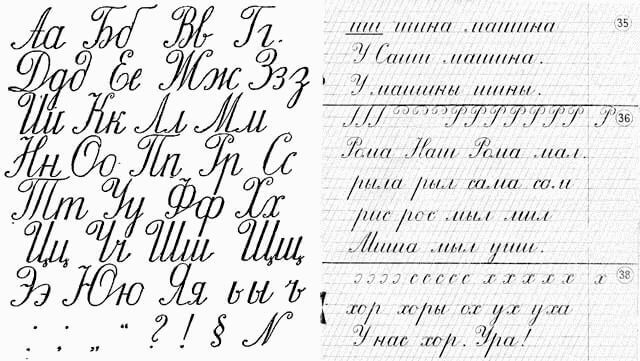 Аа Бб Вв Гг.
Ддд Ее Жж Ззз
Ии Кк Лл Мм
Нн Оо Пп Рр Сс
Тт Уу Фф Хх
Цц Чч Шш Щщ
Ээ Юю Яя ь ы ъ
. , : ; „ “ ? ! § N
35
ши шина машина
У Саши машина.
У машины шины.
36
Р Р Р Р Р Р Р Р
Рома Наш Рома мал.
рыла рыл сама сом
рис рос мыл мил
Миша мыл уши.
38
э э э э с с с с с х х х х х х
хор хоры ох ух уха
У нас хор. Ура!